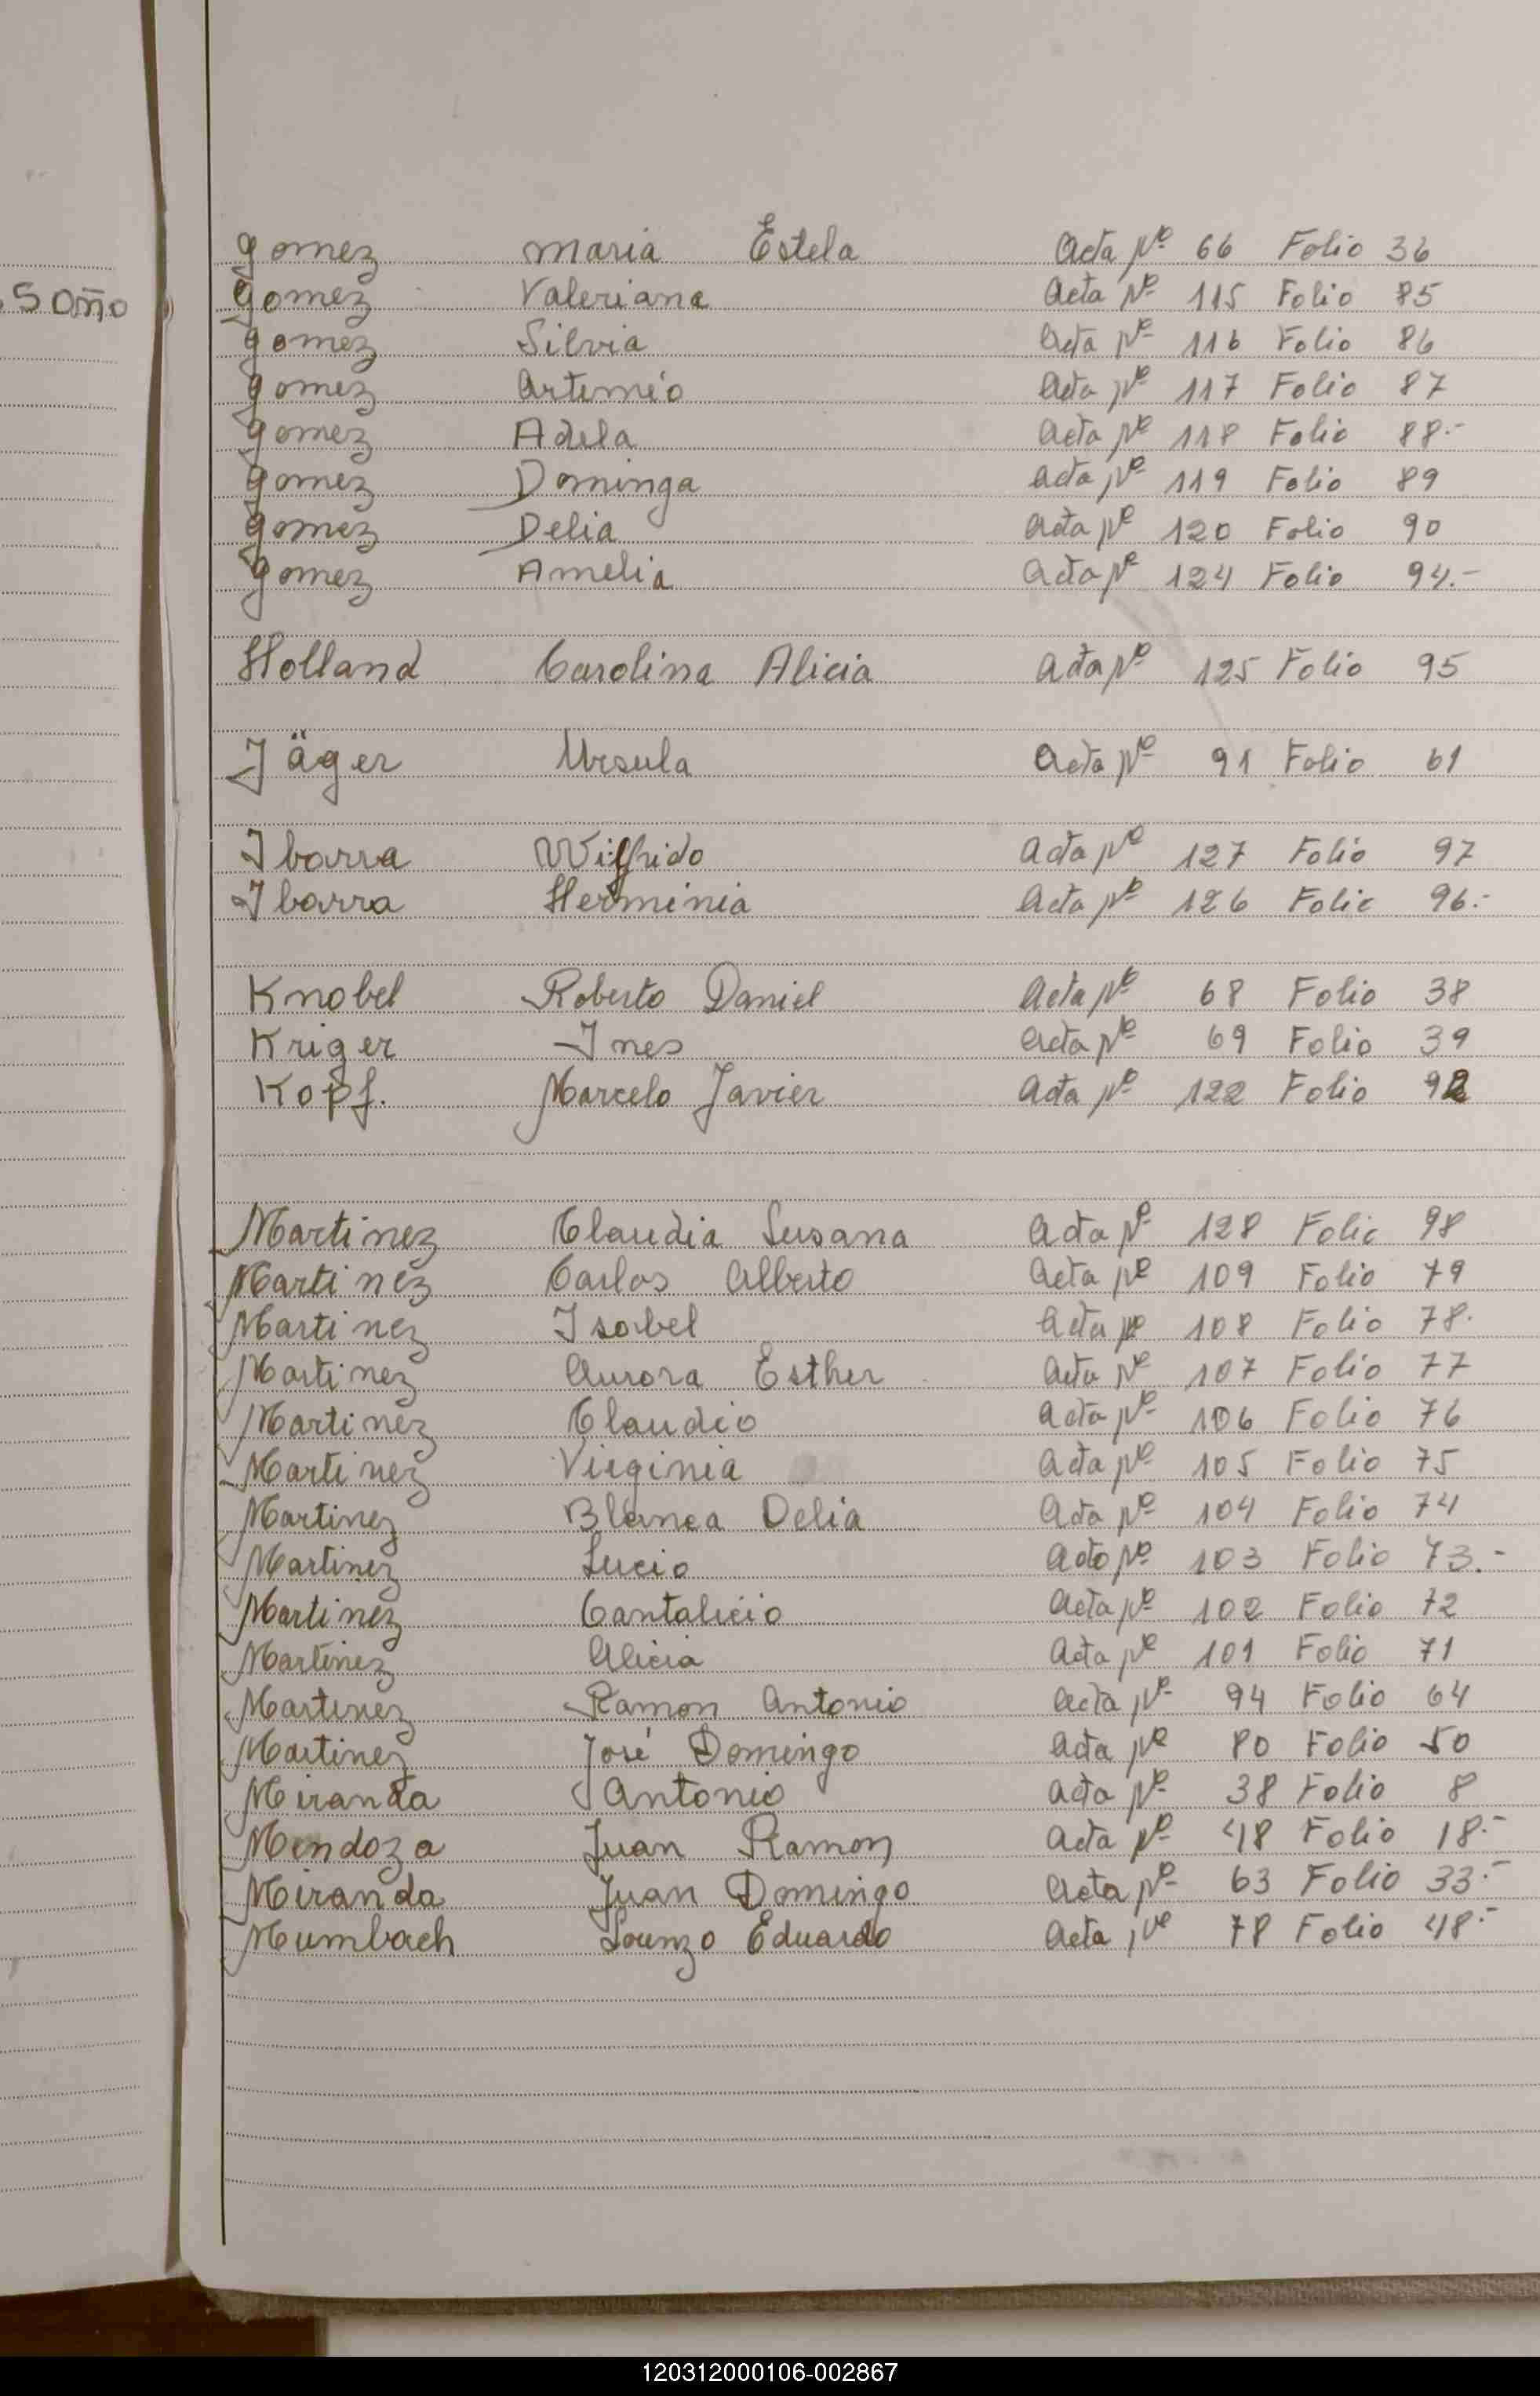 Gomez Maria Estela Acta Nº 66 Folio 36
5 año
Gomez Valeriana Acta Nº 115 Folio 85
Gomez Silvia Acta Nº 116 Folio 86
Gomez Artemio Acta Nº 117 Folio 87
Gomez Adela Acta Nº 118 Folio 88.-
Gomez Dominga Acta Nº 119 Folio 89
Gomez Delia Acta Nº 120 Folio 90
Gomez Amelia Acta Nº 124 Folio 94.-
Holland Carolina Alicia Acta Nº 125 Folio 95
Jäger Ursula Acta Nº 91 Folio 61
Ibarra Wilfrido Acta Nº 127 Folio 97
Ibarra Herminia Acta Nº 126 Folio 96.-
Knobel Roberto Daniel Acta Nº 68 Folio 38
Kriger Ines Acta Nº 69 Folio 39
Kopf. Marcelo Javier Acta Nº 122 Folio 92
Martinez Claudia Susana Acta Nº 128 Folio 98
Martinez Carlos Alberto Acta Nº 109 Folio 79
Martinez Isabel Acta Nº 108 Folio 78.
Martinez Aurora Esther Acta Nº 107 Folio 77
Martinez Claudio Acta Nº 106 Folio 76
Martinez Virginia Acta Nº 105 Folio 75
Martinez Blanca Delia Acta Nº 104 Folio 74
Martinez Lucio Acta Nº 103 Folio 73.-
Martinez Cantalicio Acta Nº 102 Folio 72
Martinez Alicia Acta Nº 101 Folio 71
Martinez Ramon Antonio Acta Nº 94 Folio 64
Martinez José Domingo Acta Nº 80 Folio 50
Miranda Antonio Acta Nº 38 Folio 8
Mendoza Juan Ramon Acta Nº 48 Folio 18.-
Miranda Juan Domingo Acta Nº 63 Folio 33.-
Mumbach Lorenzo Eduardo Acta Nº 78 Folio 48.-
120312000106-002867